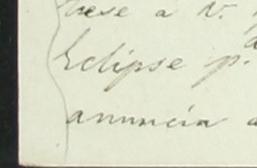 ese a V.
Eclipse p.
annuncia a